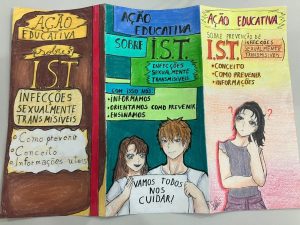 AÇÃO
EDUCATIVA
Sobre
IST
INFECÇÕES
SEXUALMENTE
TRANSMISÍVEIS
Como prevenir
Conceito
Informações uteis
AÇÃO
EDUCATIVA
SOBRE
I.S.T.
INFECÇÕES
SEXUALMENTE
TRANSMISÍVEIS
COM ISSO NÓS:
•INFORMAMOS
•ORIENTAMOS COMO PREVENIR
•ENSINAMOS
VAMOS TODOS
NOS
CUIDAR!
AÇÃO EDUCATIVA
SOBRE PREVENÇÃO DE
I.S.T.
INFECÇÕES
SEXUALMENTE
TRANSMISSÍVEIS
•CONCEITO
•COMO PREVENIR
•INFORMAÇÕES
? ?